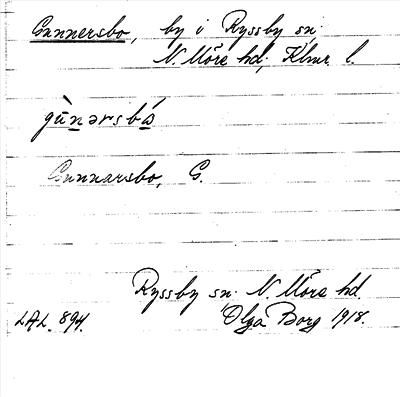 Gunnersbo, by i Ryssby sn,
N. Möre hd, Klmr l.
gùnərsbá
Gunnarsbo, G.
Ryssby sn. N. Möre hd.
LAL. 894. Olga Borg 1918.